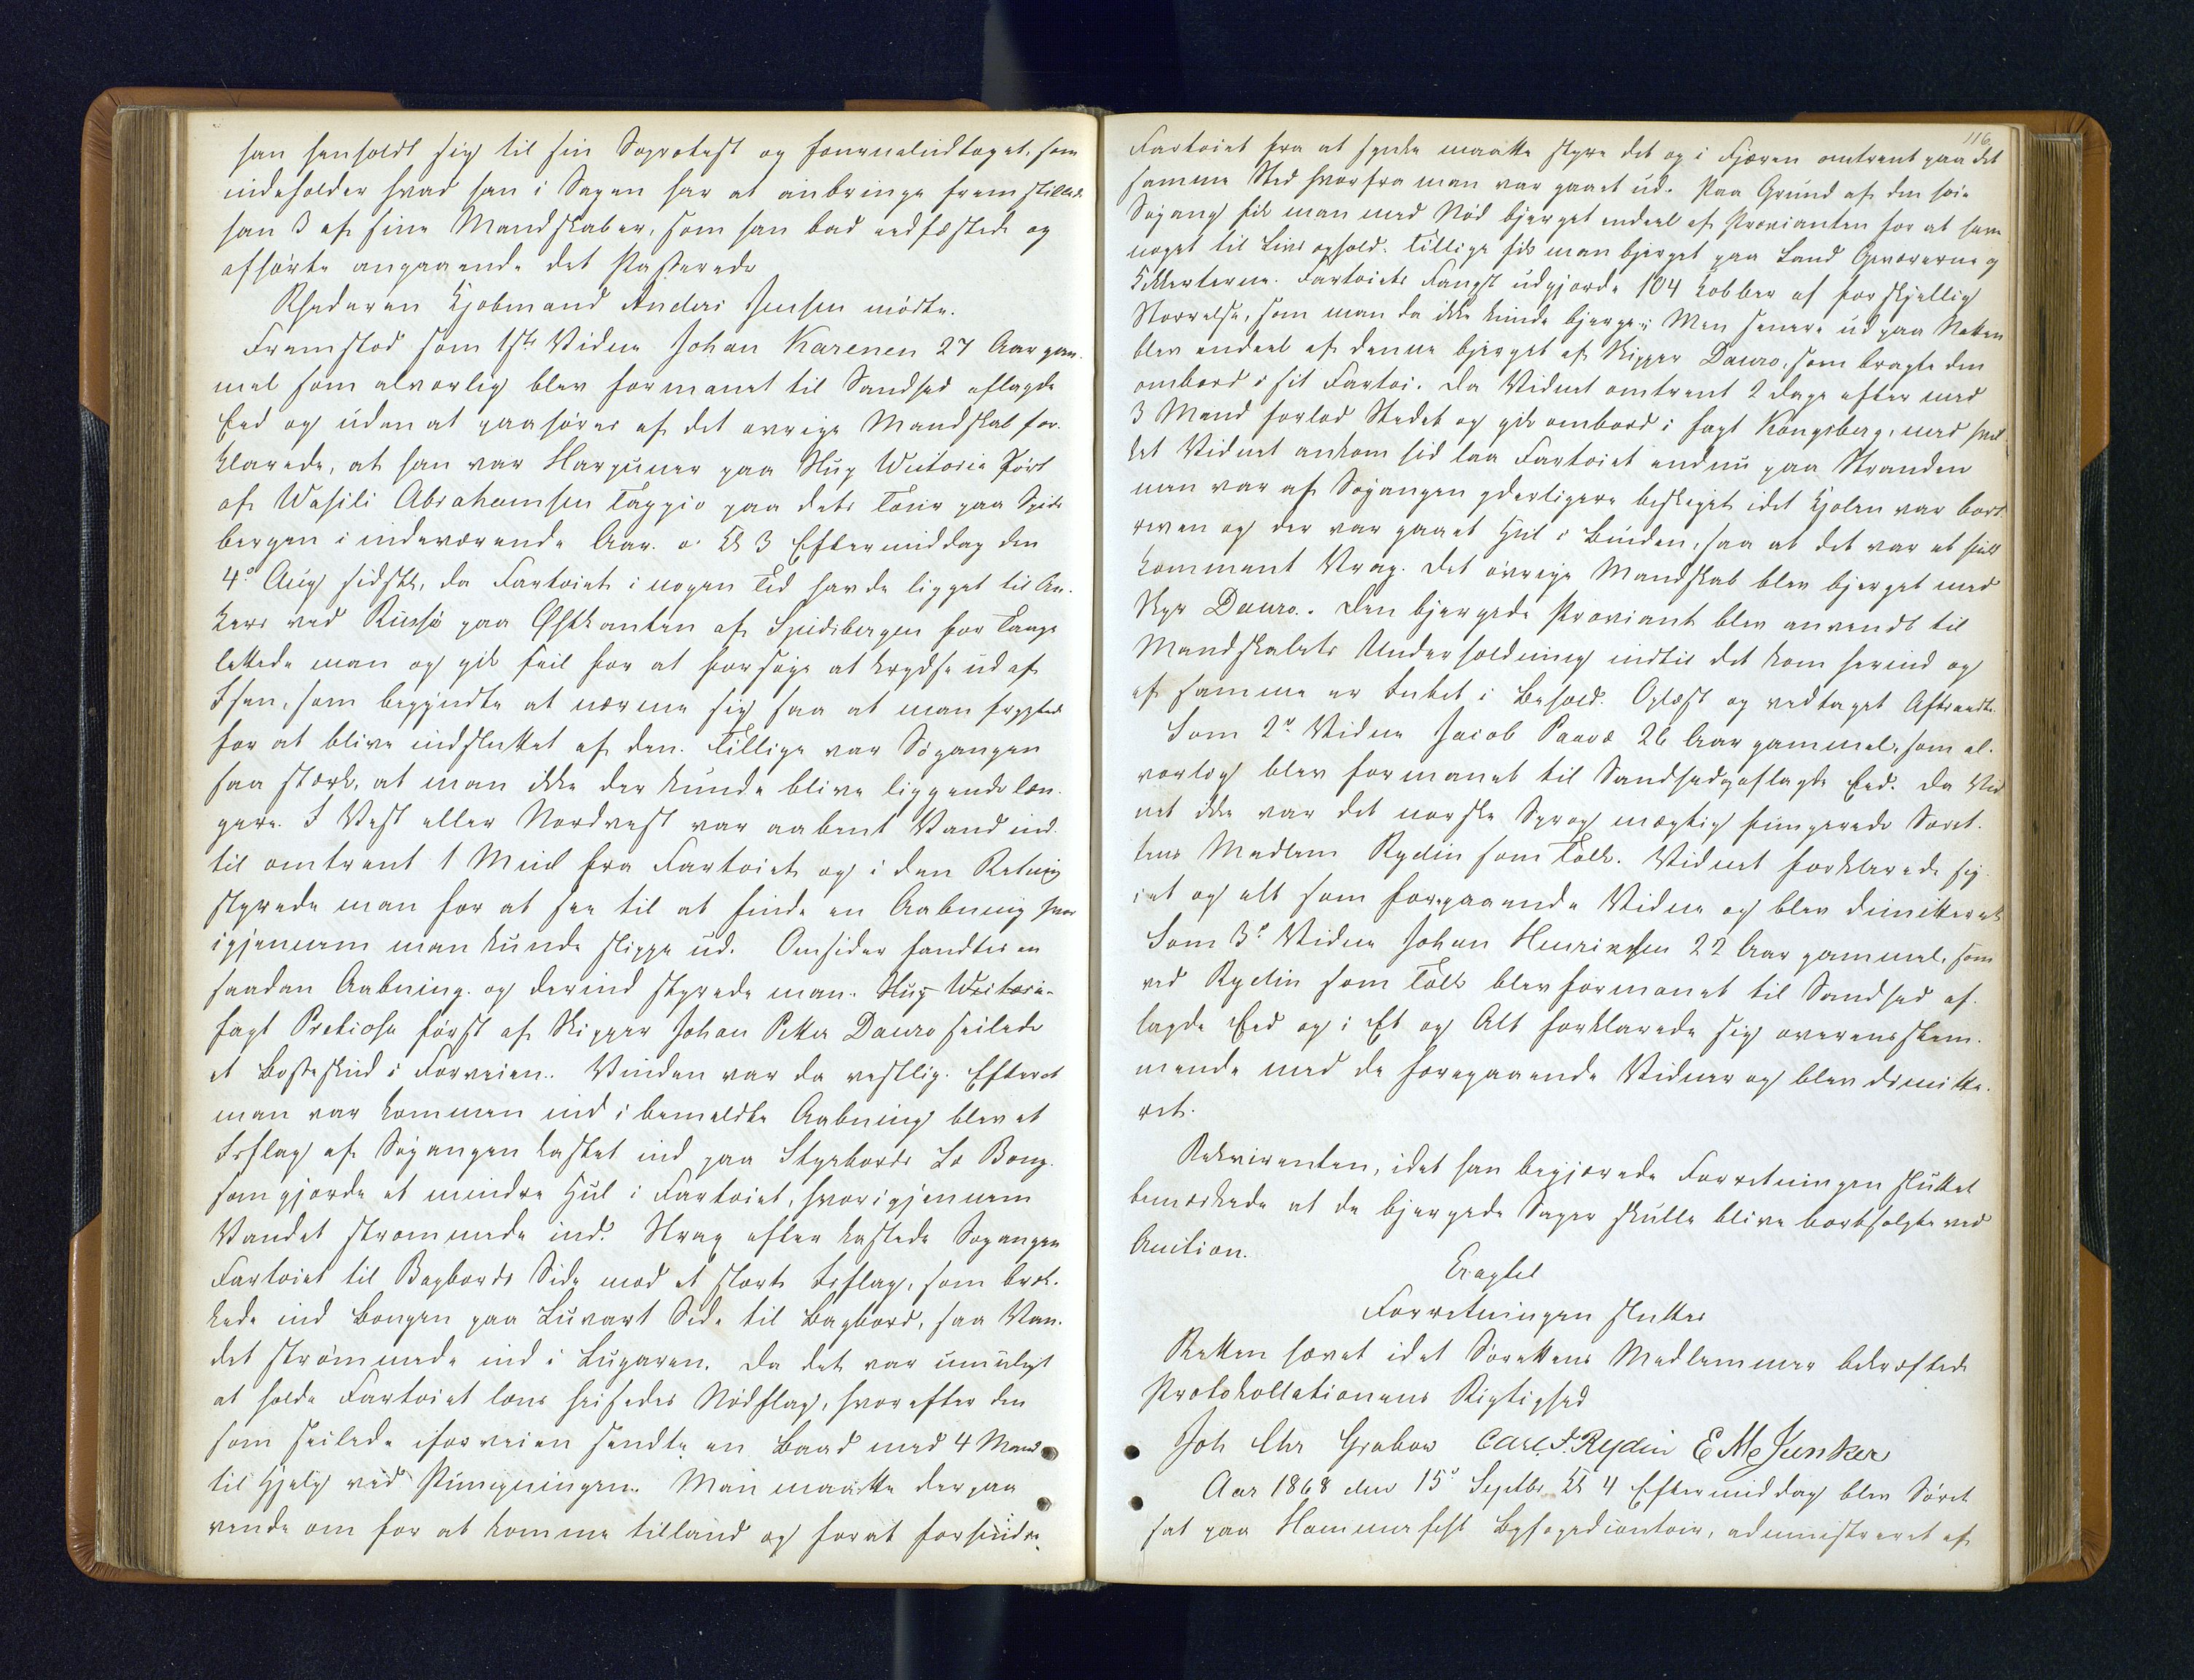 han henholdt sig til sin Søprotest og Journaludtoget, som
indeholder hvad han i Sagen har at anbringe fremstillede
han 3 af sine Mandskaber, som han bad edfæstede og
afhørte angaaende det Passerede
Rhederen Kjøbmand Anders Jensen mødte.
Fremstod som 1ste Vidne Johan Karenen 27 Aar gam-
mel som alvorlig blev formanet til Sandhed aflagde
Eed og uden at paahøres af det øvrige Mandskab for-
klarede, at han var Harpuner paa Slup Victoria ført
af Wasili Abrahamsen Tappio paa dets Tour paa Spids
bergen i indeværende Aar. Kl 3 Eftermiddag den
4de Aug sidstl, da Fartøiet i nogen Tid havde ligget til An-
kers ved Russø paa Østkanten af Spidsbergen for Taage
lettede man og gik seil for at forsøge at krydse ud af
Isen, som begyndte at nærme sig saa at man frygtede
for at blive indsluttet af den. Tillige var Søgangen
saa stærk, at man ikke der kunde blive liggende læn-
gere. I Vest eller Nordvest var aabent Vand ind-
til omtrent 1 Miil fra Fartøiet og i den Retning
styrede man for at see til at finde en Aabning hvor
igjennem man kunde slippe ud. Omsider fandtes en
saadan Aabning og derind styrede man. Slup Victoria
Jagt Pretiosa først af Skipper Johan Petter Dauro seilede
et Bøsseskud i Forveien. Vinden var da vestlig. Efterat
man var kommen ind i bemeldte Aabning blev et
Isflag af Søgangen kastet ind paa Styrbords Læ Boug.
som gjorde et mindre Hul i Fartøiet, hvorigjennem
Vandet strømmede ind. Strax efter kastede Søgangen
Fartøiet til Bagbords Side mod et stort Isflag, som bræk-
kede ind Bougen paa Luvart Side til Bagbord, saa Van-
det strømmede ind i Lugaren. Da det var umuligt
at holde Fartøiet læns heisedes Nødflag, hvorefter den
som seilede iforveien sendte en Baad med 4 Mand
til Hjelp ved Pumpningen. Man maatte derpaa
vende om for at komme tilland og forat forhindre
116
Fartøiet fra at synke maatte styre det op i Fjæren omtrent paa det
samme Sted hvorfra man var gaaet ud. Paa Grund af den høie
Søgang fik man med Nød bjerget endeel af Provianten for at have
noget til Livsophold. Tillige fik man bjerget paa Land Geværerne og
Kikkerterne. Fartøiets Fangst udgjorde 104 Kobber af forskjellig
Størrelse, som man da ikke kunde bjerge; Men senere ud paa Natten
blev endeel af denne bjerget af Skipper Dauro, som bragte den
ombord i sit Fartøi. Da Vidnet omtrent 2 Dage efter med
3 Mand forlod Stedet og gik ombord i Jagt Kongsberg, med hvil
ket Vidnet ankom hid laa Fartøiet endnu paa Stranden
men var af Søgangen yderligere beskeget idet Kjølen var bort
reven og der var gaaet Hul i Bunden, saa at det var et fuld
komment Vrag. Det øvrige Mandskab blev bjerget med
Skpr Dauro. Den bjergede Proviant blev anvendt til
Mandskabets Underholdning indtil det kom herind og
af samme er Intet i Behold. Oplæst og vedtaget Aftraadte.
Som 2de Vidne Jacob Paavæ 26 Aar gammel, som al-
vorlig blev formanet til Sandhed og aflagde Eed. Da Vid
net ikke var det norske Sprog mægtig fungerede Søret-
tens Medlem Rydin som Tolk. Vidnet forklarede sig
i et og alt som foregaaende Vidne og blev dimitteret
Som 3de Vidne Johan Henriksen 22 Aar gammel, som
ved Rydin som Tolk blev formanet til Sandhed af-
lagde Eed og i Et og Alt forklarede sig overensstem-
mende med de foregaaende Vidner og blev dimitte-
ret.
Rekvirenten, idet han begjærede Forretningen sluttet
bemærkede at de bjergede Sager skulle blive bortsolgte ved
Auction.
Eragtet
Forretningen sluttes
Retten hævet idet Sørettens Medlemmer bekræftede
Protokollationens Rigtighed
Joh Chr Grabow Carl F. Rydin E M Junker
Aar 1868 den 15de Septbr Kl 4 Eftermiddag blev Søret
sat paa Hammerfest Byfogedcontoir, administreret af